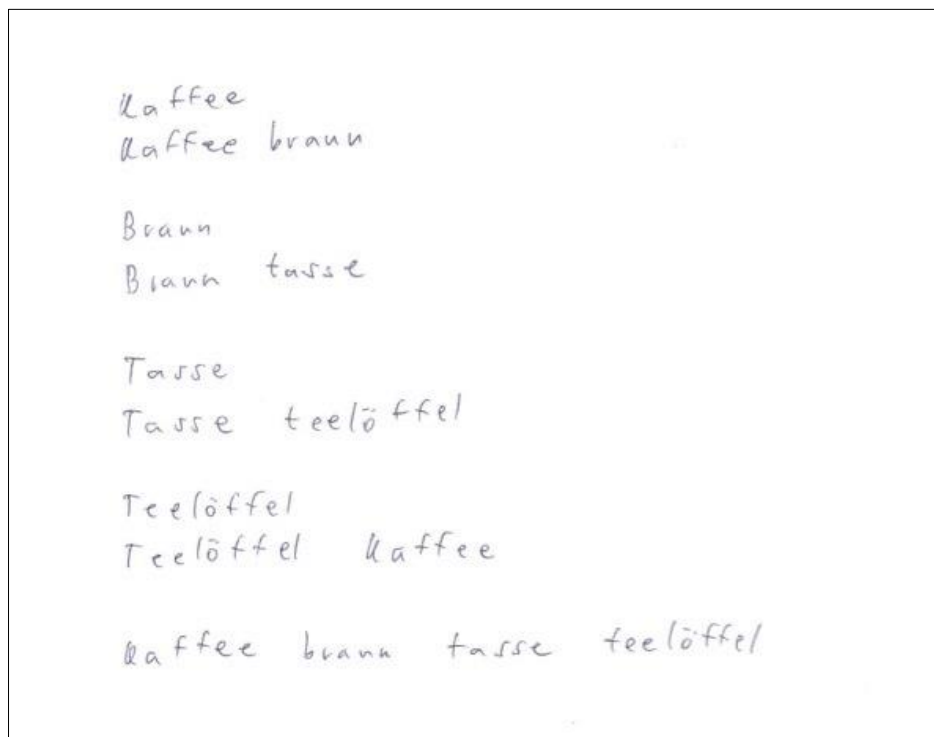 Kaffee
Kaffee braun
Braun
Braun tasse
Tasse
Tasse teelöffel
Teelöffel
Teelöffel Kaffee
Kaffee braun tasse teelöffel